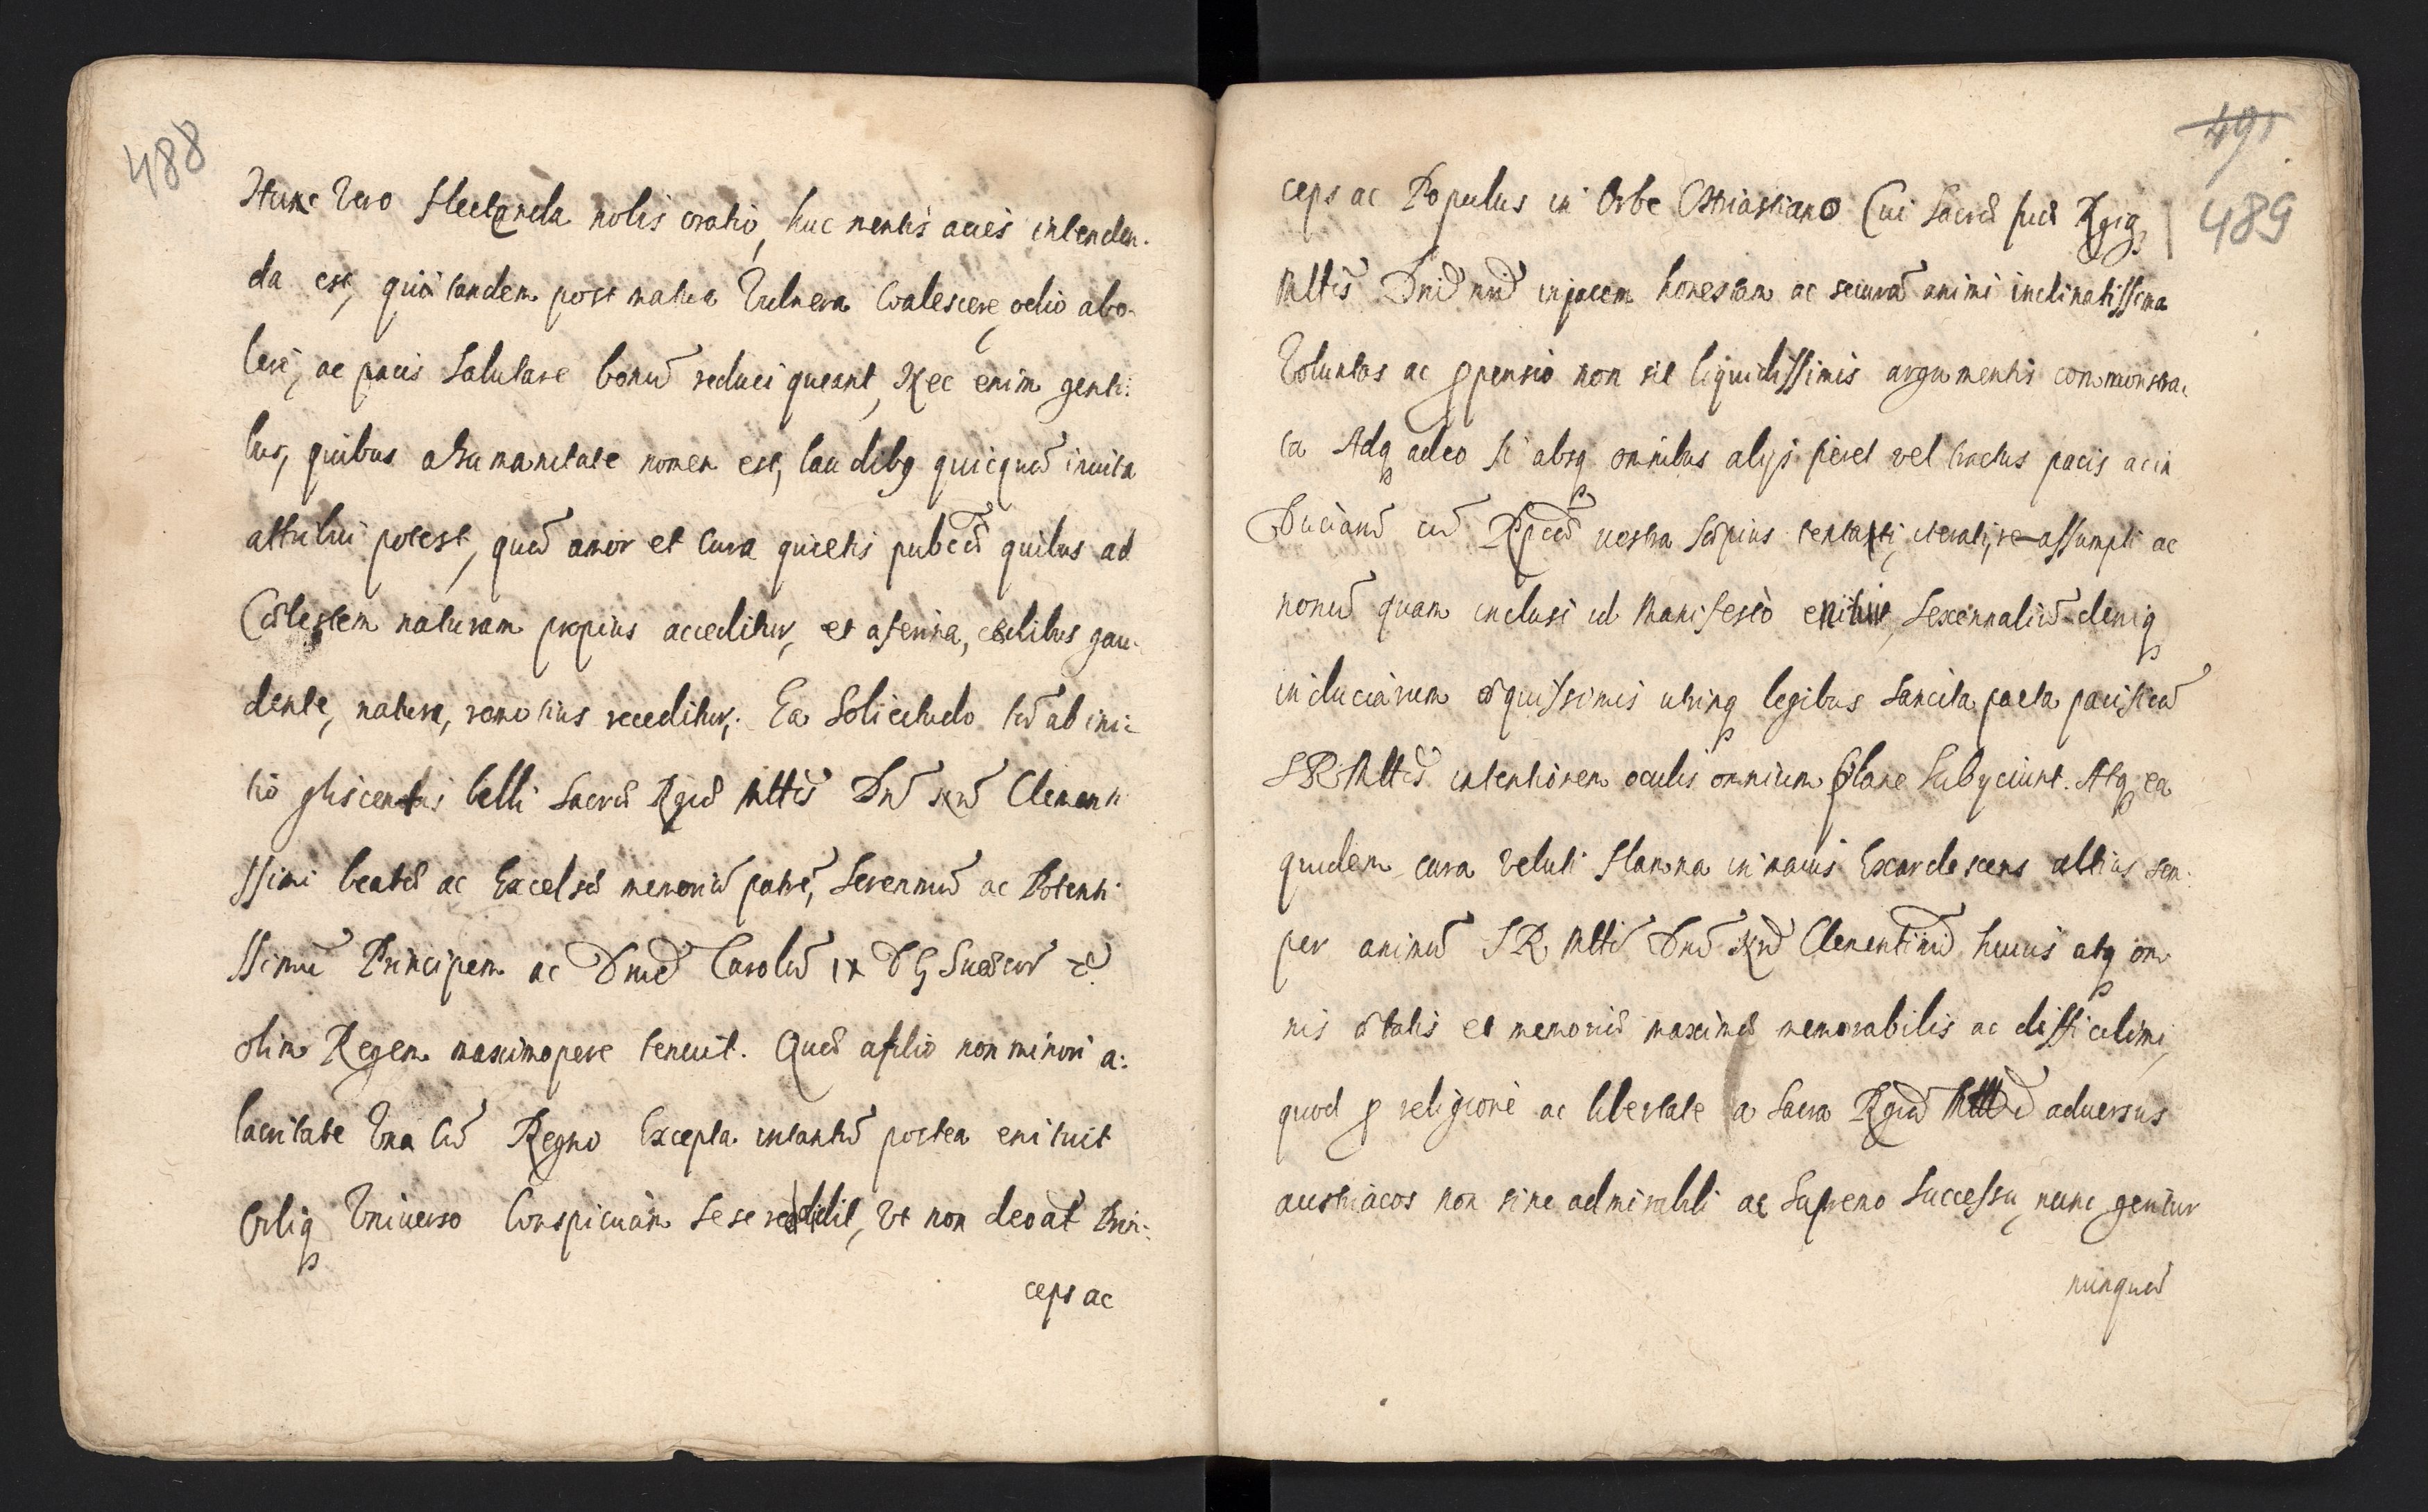 488
Hunc Vero flectenda nobis oratio, huc mentis acies intenden-
da est, quo tandem post matura Vulnera Coalescere, odio abo-
leri, ac pacis Salutare bonū reduci queant, Nec enim genti:
bus, quibus ab humanitate nomen est, laudibq quicquā inuita
attribui potest, quā amor et Cura quietis pubcæ quibus ad
Cœlestem naturam propius acceditur, et a ferina, cædibus gau-
dente, natura, remotius receditur,. Ea Solicitudo tū ab ini:
tio gliscentis belli Sacræ Rgiæ Mttis Dnī nrī Clementi
ssimi beatæ ac Excelsæ memoriæ patrē, Serenmū ac Potenti
ssimū Principem ac Dnūe Carolū IX D G Sueæcor etc
olim Regem maximopere tenuit. Quæ a filio non minori a:
lacritate Vna cū Regno Excepta intantū postea enituit
Orbiq Vniuerso Conspicuam Sese reddidit, Vt non deoat Prin:
ceps ac
491
489
ceps ac Populus in Orbe Christiano Cui Sacræ suæ Rgiq
Mttis Dnī nrī inpacem honestam ac securā animi inclinatissima
Voluntas ac ppensio non sit liquidissimis argumentis commonstra,
ta Adq adeo si absq omnibus alijs fieret vel tractus pacis ac in
Duciarū cū Rpcā uestra Sæpius tentati, iterati, re-assumpti ac
nonū quam inclusi id Manifesto enitur, Sexennaliū deniq
induciarum æquissimis utrinq legibus Sancita pacta pacificā
S R Mttis intentionem oculis omnium plane Subijciunt. Atq ea
quidem cura Veluti flamma in maius Exardescens altius sem:
per animū S R Mttis Dnī Nrī Clementimī huius atq om
nis ætatis et memoriæ maximæ memorabilis ac difficilimi,
quod p religione ac libertate a Sacra Rgiā Mtte adversus
austriacos non sine admirabili ac Supremo Successu, nunc geritur
nunquā